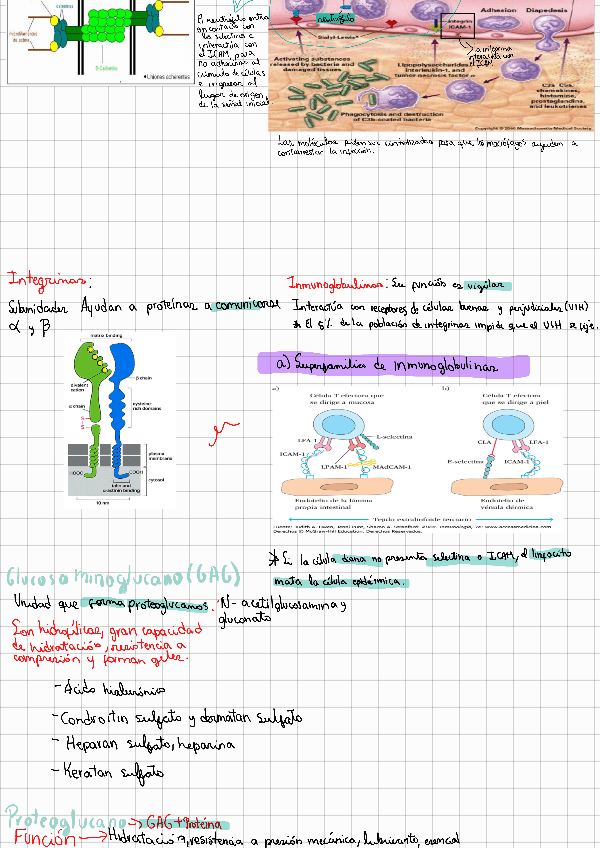 El neutrófilo entra
en contacto con
la selectina e
interactúa con
el ICAM, para
no adherirse al
cúmulo de células
e ingresar al
lugar de origen
de la señal inicial
Uniones adherentes
neutrófilo
Sialyl-Lewisˣ
Integrin
ICAM-1
Adhesion Diapedesis
la integrina
interactúa con
el ICAM
Activating substances
released by bacteria and
damaged tissues
Lipopolysaccharides,
interleukin-1, and
tumor necrosis factor α
C3b C5a,
chemokines,
histamine,
prostaglandins,
and leukotrienes
Phagocytosis and destruction
of C3b-coated bacteria
Las moléculas pueden ser sintetizadas para que los macrófagos ayuden a
contrarrestar la infección.
Integrinas:
Subunidades Ayudan a proteínas a comunicarse
α y β
matrix binding
divalent
cation
β chain
α chain
cysteine-
rich domains
S
S
plasma
membrane
HOOC
COOH
cytosol
talin and
α-actinin binding
10 nm
Inmunoglobulinas: Su función es vigilar
Interactúa con receptores de células buenas y perjudiciales (VIH)
* El 5% de la población de integrinas impide que el VIH se fije.
a) Superfamilia de inmunoglobulinas
a)
Célula T efectora que
se dirige a mucosa
LFA-1
L-selectina
ICAM-1
LPAM-1
MAdCAM-1
Endotelio de la lámina
propia intestinal
b)
Célula T efectora
que se dirige a piel
CLA
LFA-1
E-selectina
ICAM-1
Endotelio de
vénula dérmica
Tejido extralinfoide terciario
Derechos © McGraw-Hill Education. Derechos Reservados.
* Si la célula diana no presenta selectina o ICAM, el linfocito
mata la célula epidérmica.
Glucosaminoglucano (GAG)
Unidad que forma proteoglucanos. N-acetilglucosamina y
gluconato
Son hidrofílicas, gran capacidad
de hidratación, resistencia a
compresión y forman geles.
- Ácido hialurónico
- Condroitin sulfato y dermatan sulfato
- Heparan sulfato, heparina
- Keratan sulfato
Proteoglucano → GAG + Proteína
Función → Hidratación, resistencia a presión mecánica, lubricante, esencial